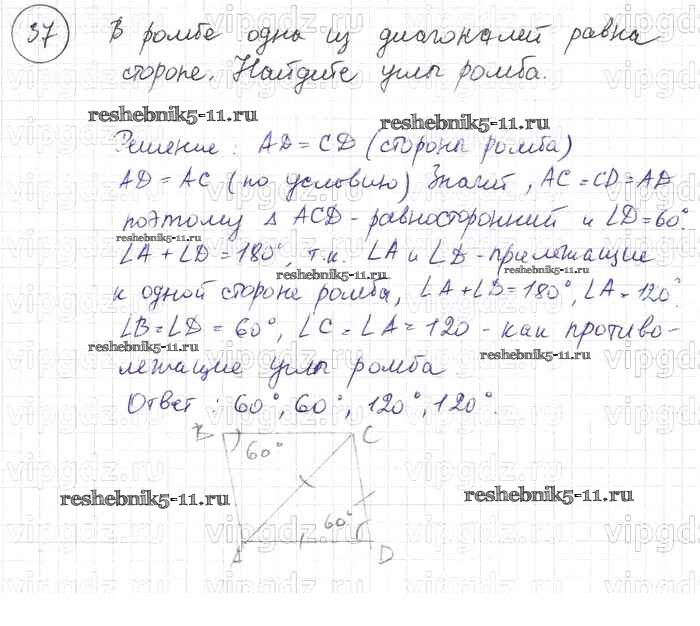 37 В ромбе одна из диагоналей равна
стороне. Найдите углы ромба.
reshebnik5-11.ru reshebnik5-11.ru
Решение: AD = CD (стороны ромба)
AD = AC (по условию) Значит, AC = CD = AD
поэтому △ ACD - равносторонний и ∠D = 60°.
reshebnik5-11.ru
∠A + ∠D = 180°, т.к. ∠A и ∠D - прилежащие
reshebnik5-11.ru reshebnik5-11.ru
к одной стороне ромба, ∠A + ∠D = 180°, ∠A = 120°
∠B = ∠D = 60°, ∠C = ∠A = 120 - как противо-
reshebnik5-11.ru reshebnik5-11.ru
лежащие углы ромба
Ответ: 60°, 60°, 120°, 120°.
B 60° C
reshebnik5-11.ru reshebnik5-11.ru
60°
A D
vipgdz.ru